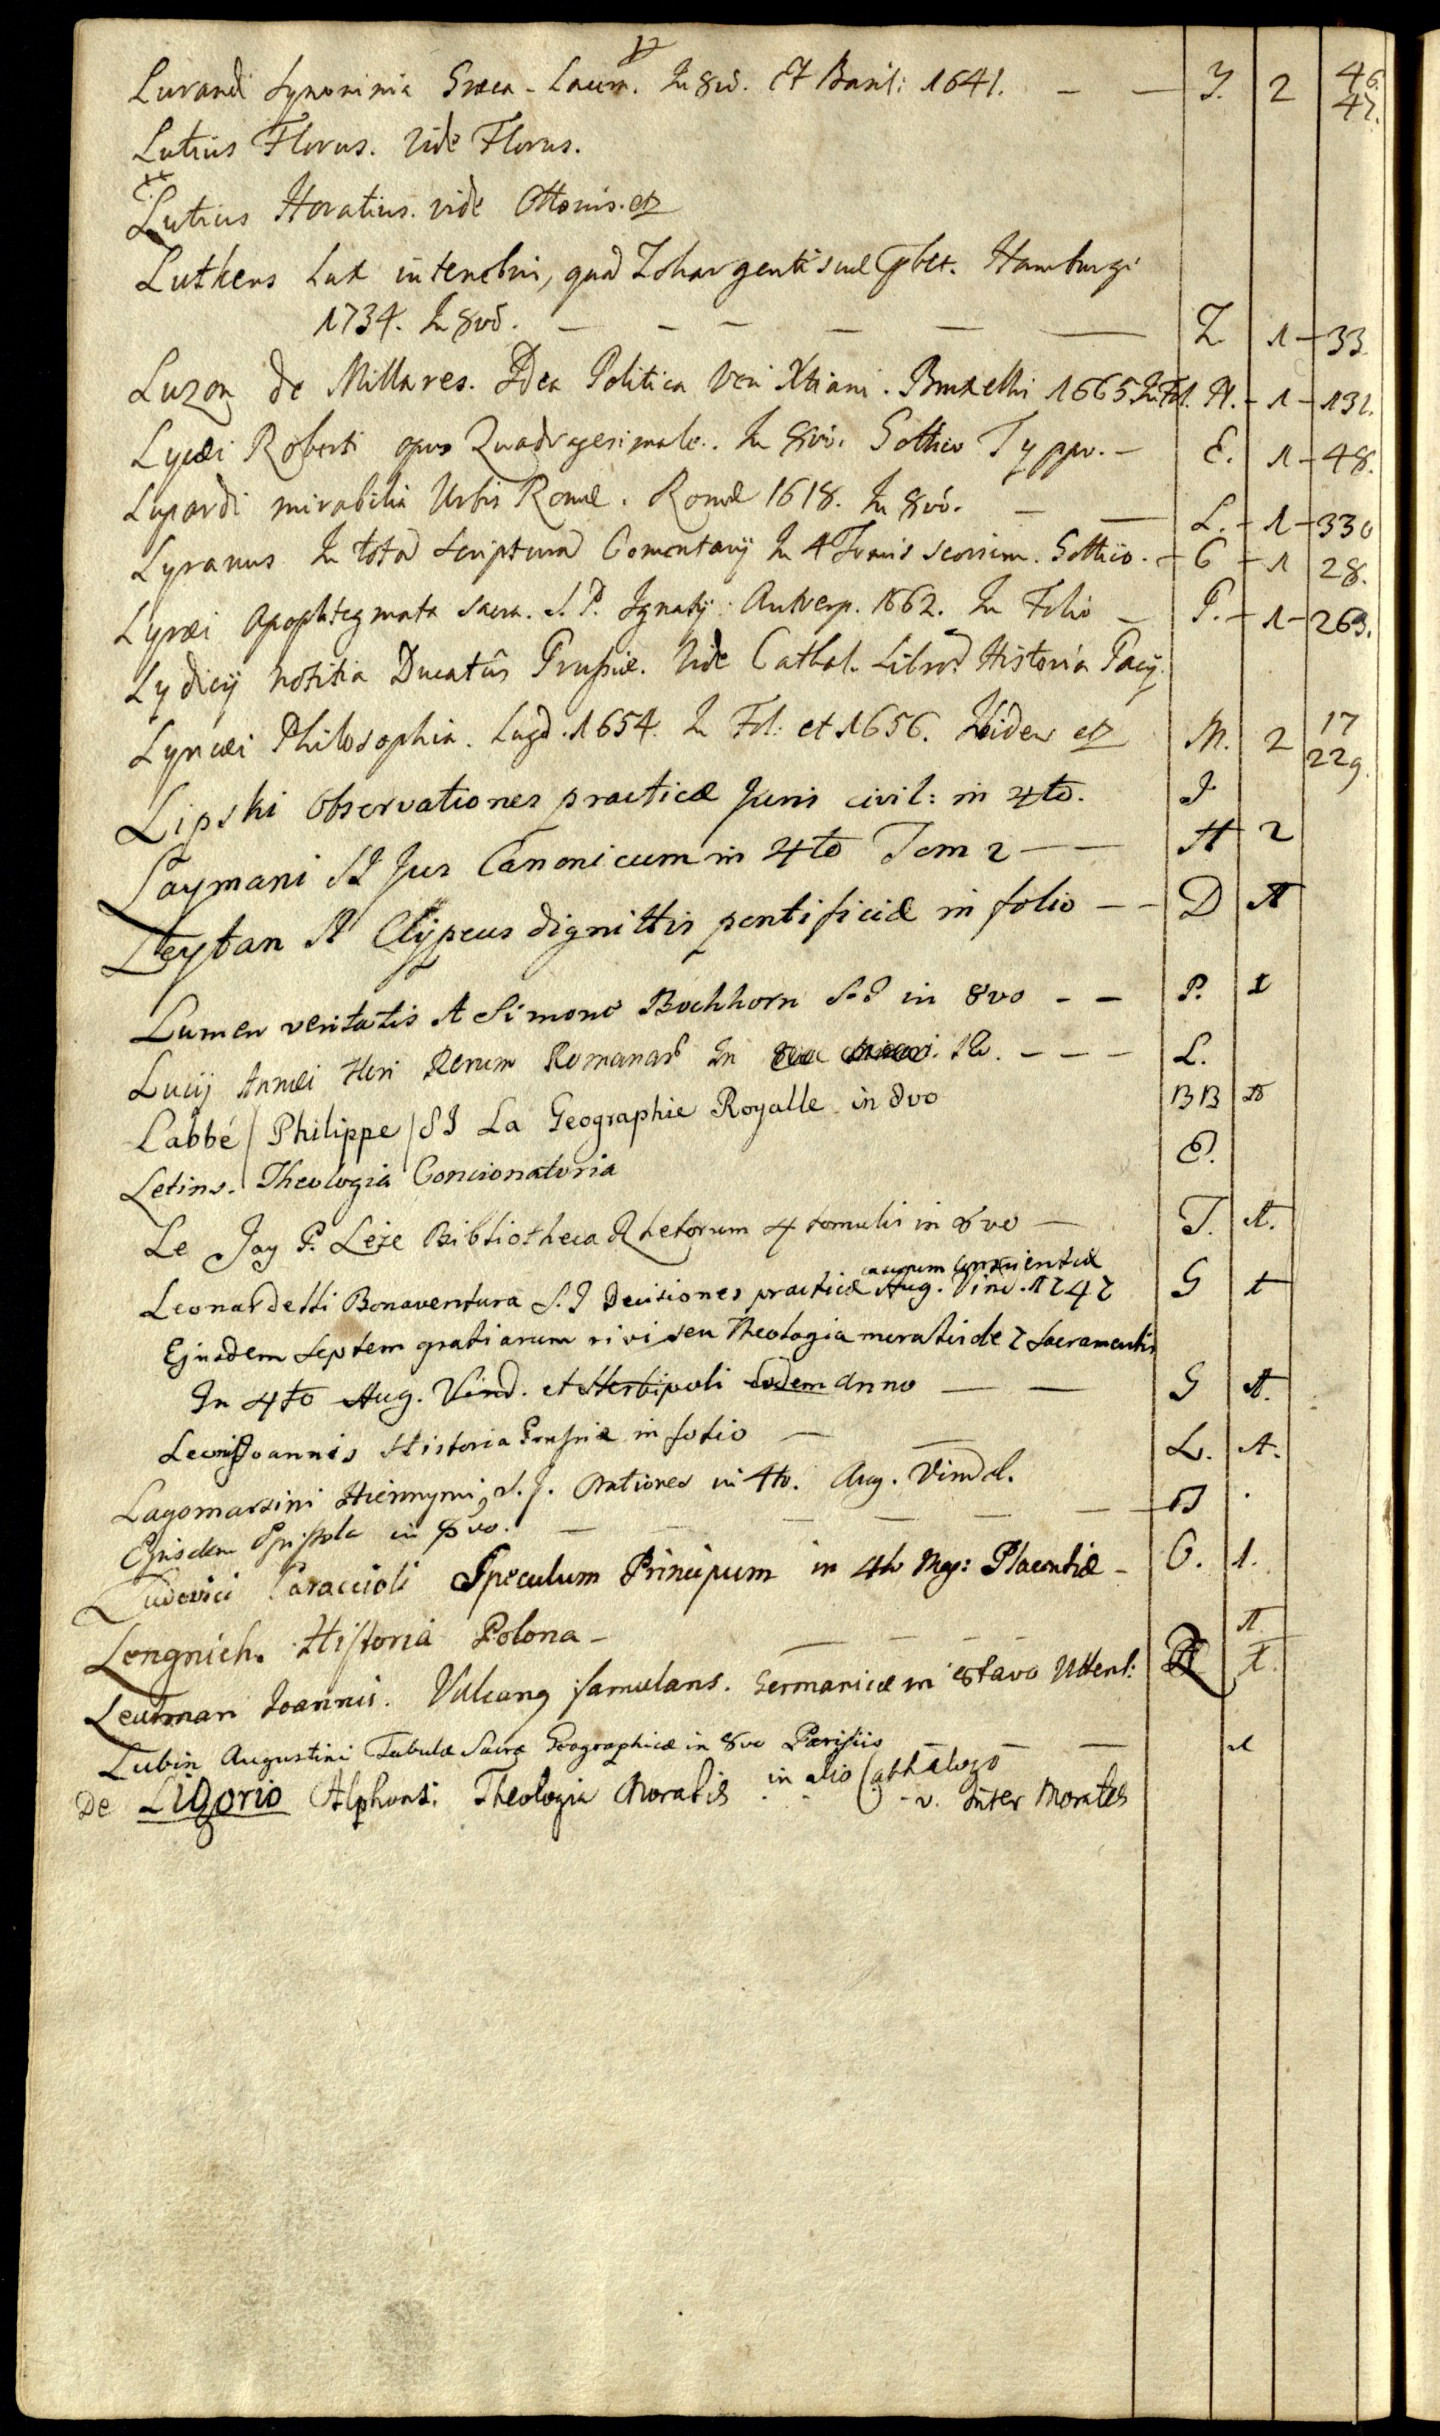 Lurandi Synonimia Græca-Latin. In 8vo. Et Basil: 1641. — — Y. 2 46. 47.
Lutius Florus. Vide Florus.
Lutius Horatius. vide Ottonis. etz
Lutkens Lux in tenebris, quad Zohar gentis Hamburgi
1734. In 8vo. — — — — — — Z 1 — 33
Luzon de Millares. Idea Politica Veri Xtiani. Bruxellis 1665 In Fol. H. — 1 — 131.
Lycæi Roberti opus Quadragesimale. In 8vo. Gothico Typpo. — E. 1 — 48.
Lupardi mirabilia Urbis Romæ. Romæ 1618. In 8vo. — — L. — 1 — 330
Lyranus In totā Scripturā Comentarij In 4 Tomis seorsim. Gothico. — C — 1 28.
Lyræi Apophtegmata Sacra. S. P. Ignatij. Antverp. 1662. In Folio — P. — 1 — 263.
Lydicij notitia Ducatûs Prussiæ. Vide Cathal. Libror. Historia Pacij.
Lyncæi Philosophia. Lugd. 1654. In Fol: et 1656. Ibidem etz M. 2 17 229.
Lipski Observationes practicæ Juris civil: in 4to. J
Laymani SJ Jus Canonicum in 4to Tom 2 — — H 2
Leytan A Clypeus dignittis pontificiæ in folio — — D A
Lumen veritatis A Simone Bochhorn S.J in 8vo — — P. 1
Lucij Annæi Flori Rerum Romanar. In 12. — — — L.
Labbé / Philippe / SJ La Geographie Royalle in 8vo BB A
Letins. Theologia Concionatoria C.
Le Jay P. Leje Bibliotheca Rhetorum 4 tomulis in 8vo — T. A.
Leonardetti Bonaventura S.J Decisiones practicæ casuum conscientiæ Aug. Vind. 1742 G t
Ejusdem Septem gratiarum rivi seu Theologia moralis de 7 Sacramentis
In 4to Aug. Vind. et Herbipoli Eodem anno — — G A.
Leonis Joannis Historia Prussiæ in folio — — L. A.
Lagomarsini Hieronymi, S.J. Orationes in 4to. Aug. Vindel.
Ejusdem Epistola in 8vo. — — — — — — B .
Ludovici Caraccioli Speculum Principum in 4to Placentiæ — O. 1.
Lengnich. Historia Polona — — — — — A
Leutman Joannis. Vulcang famulans. Germanice in 8tavo Wttenb: A.
Lubin Augustini Tabulæ Sacræ Geographicæ in 8vo Parisiis — — — A
De Ligorio Alphonsi Theologia Moralis . . in alio Cathalogo - v. inter Morales